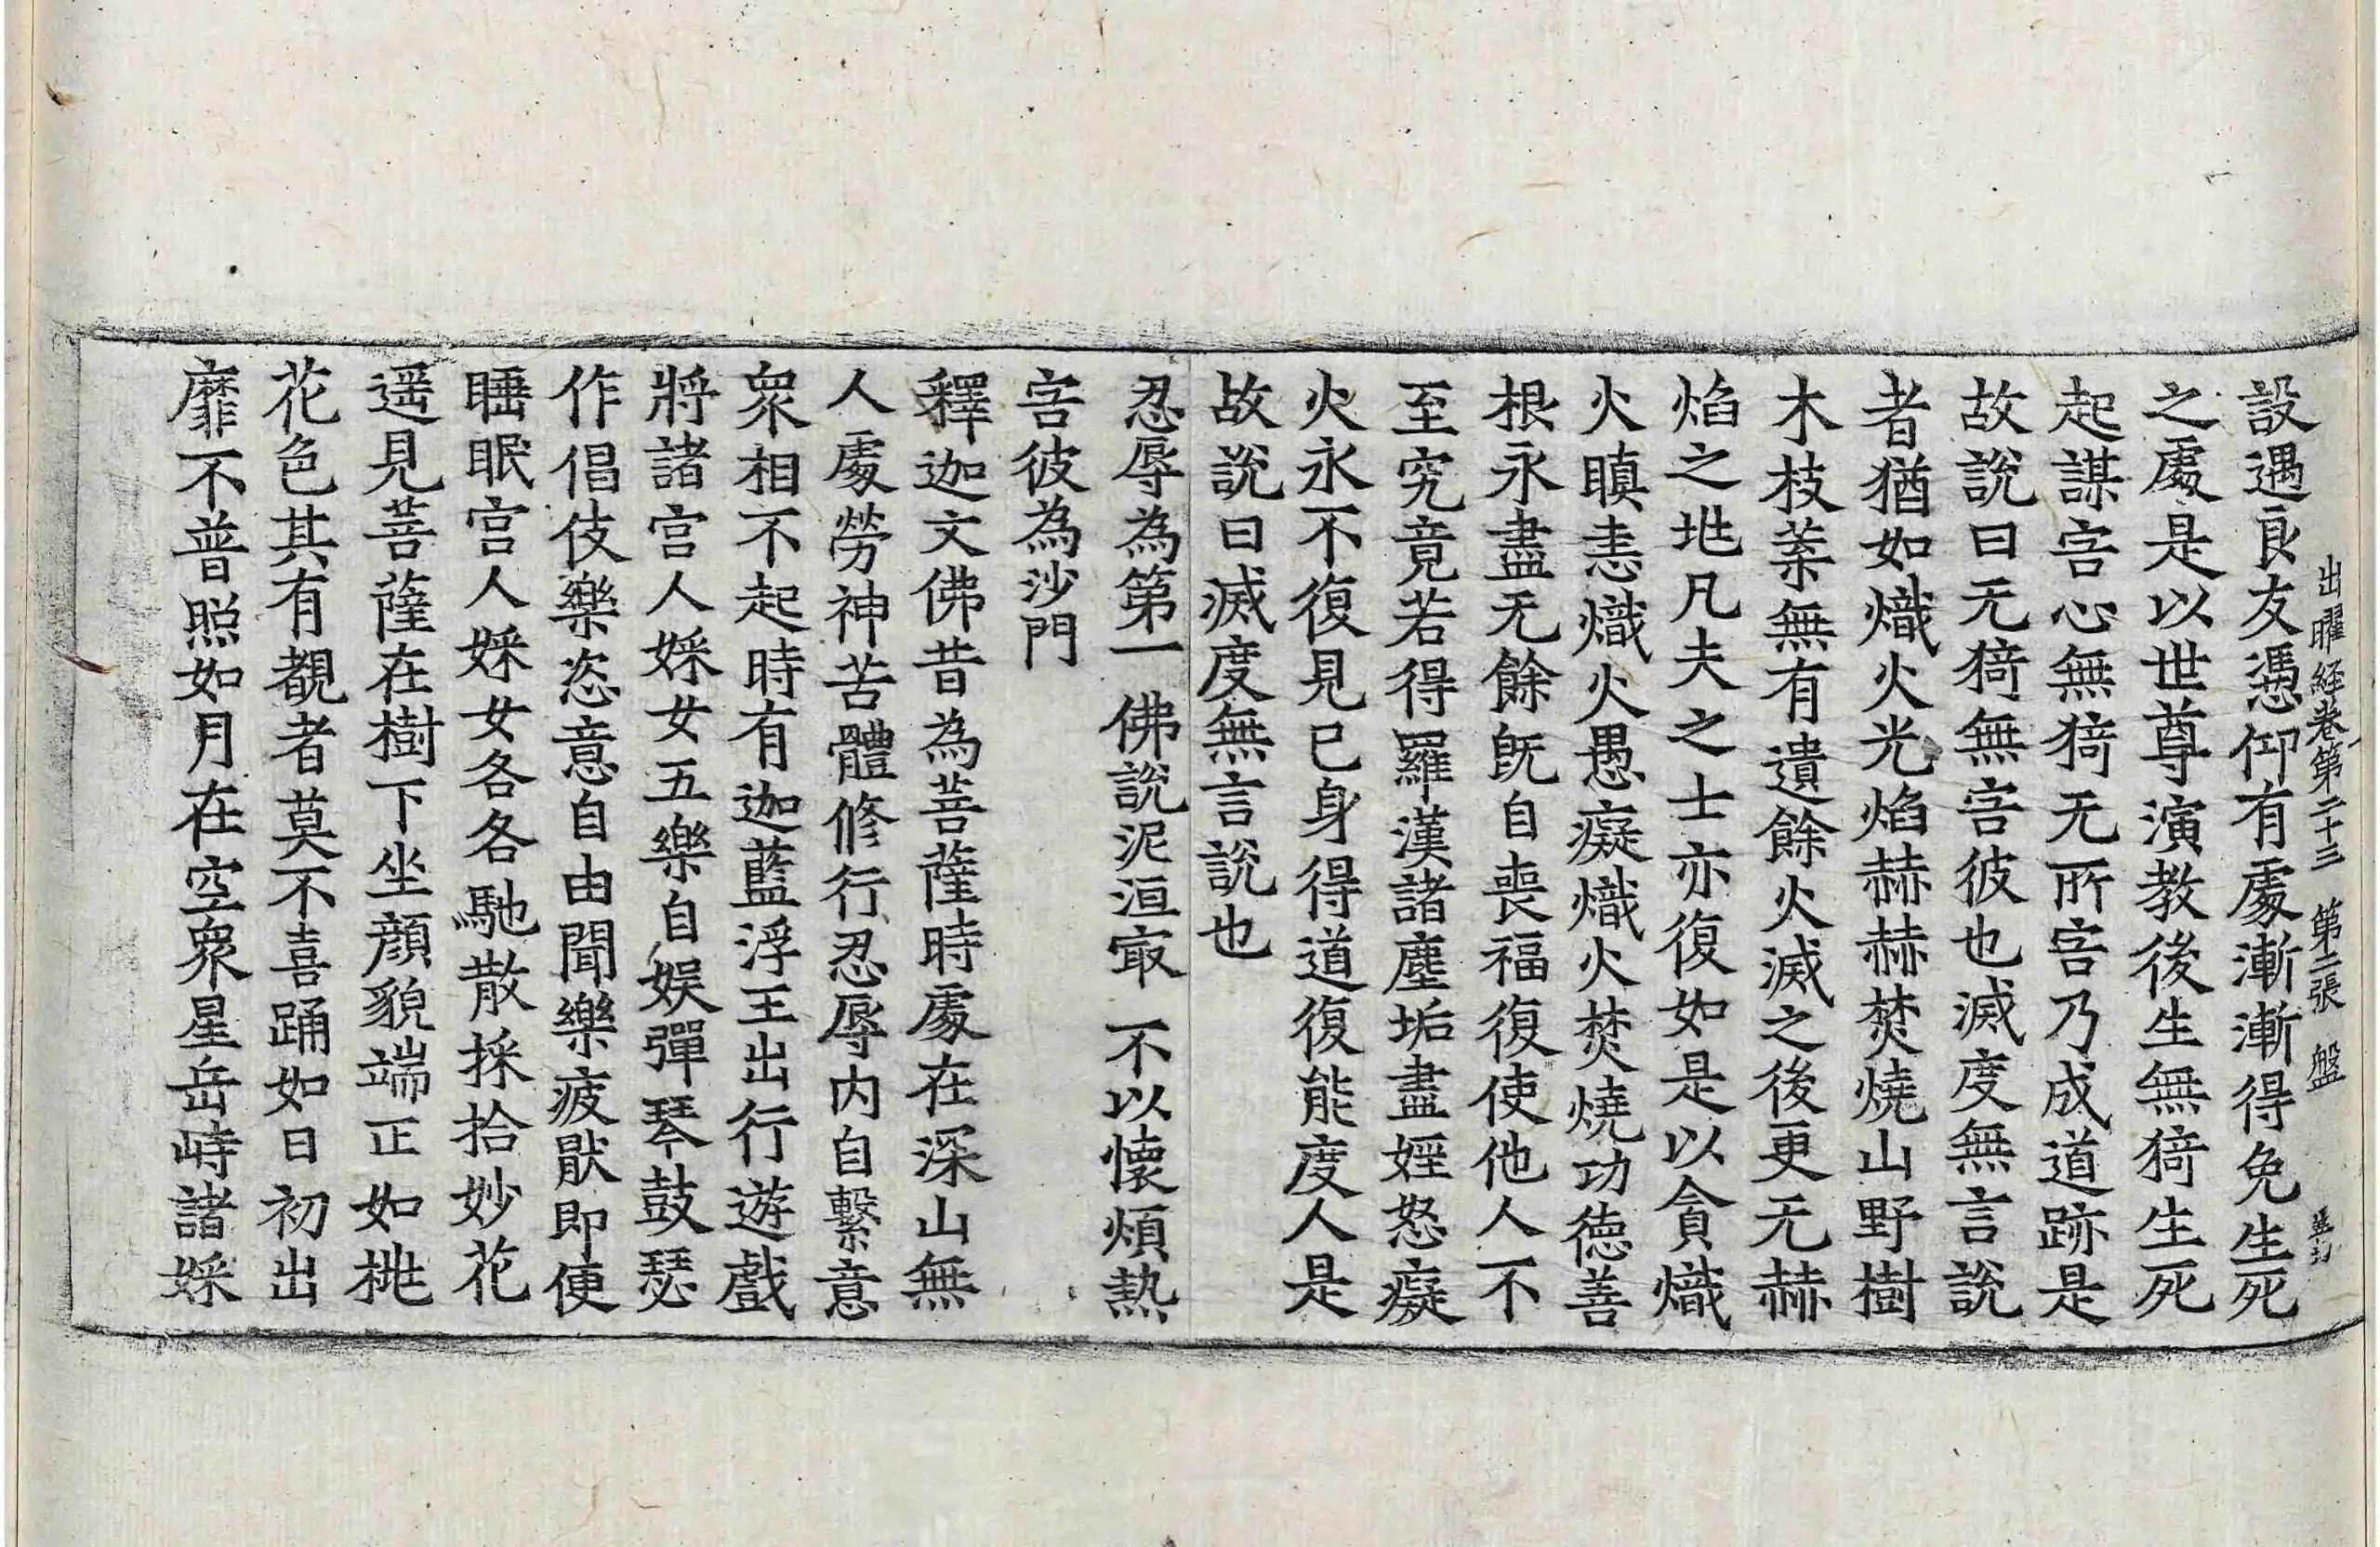 出曜経卷第二十三 第二張 盤
設遇良友憑仰有處漸漸得免生死
之處是以世尊演教後生無猗生死
起謀害心無猗无所害乃成道跡是
故說曰无猗無害彼也滅度無言說
者猶如熾火光焰赫赫焚燒山野樹
木枝葉無有遺餘火滅之後更无赫
焰之兆凡夫之士亦復如是以貪熾
火瞋恚熾火愚癡熾火焚燒功德善
根永盡无餘旣自喪福復使他人不
至究竟若得羅漢諸塵垢盡婬怒癡
火永不復見已身得道復能度人是
故說曰滅度無言說也
忍辱為第一 佛說泥洹㝡 不以懷煩熱
害彼為沙門
釋迦文佛昔為菩薩時處在深山無
人處勞神苦體修行忍辱内自繫意
衆相不起時有迦藍浮王出行遊戲
將諸宫人婇女五樂自娱彈琴鼓瑟
作倡伎樂恣意自由聞樂疲猒即便
睡眠宫人婇女各各馳散採拾妙花
遥見菩薩在樹下坐顔貌端正如桃
花色其有覩者莫不喜踊如日初出
靡不普照如月在空衆星岳峙諸婇